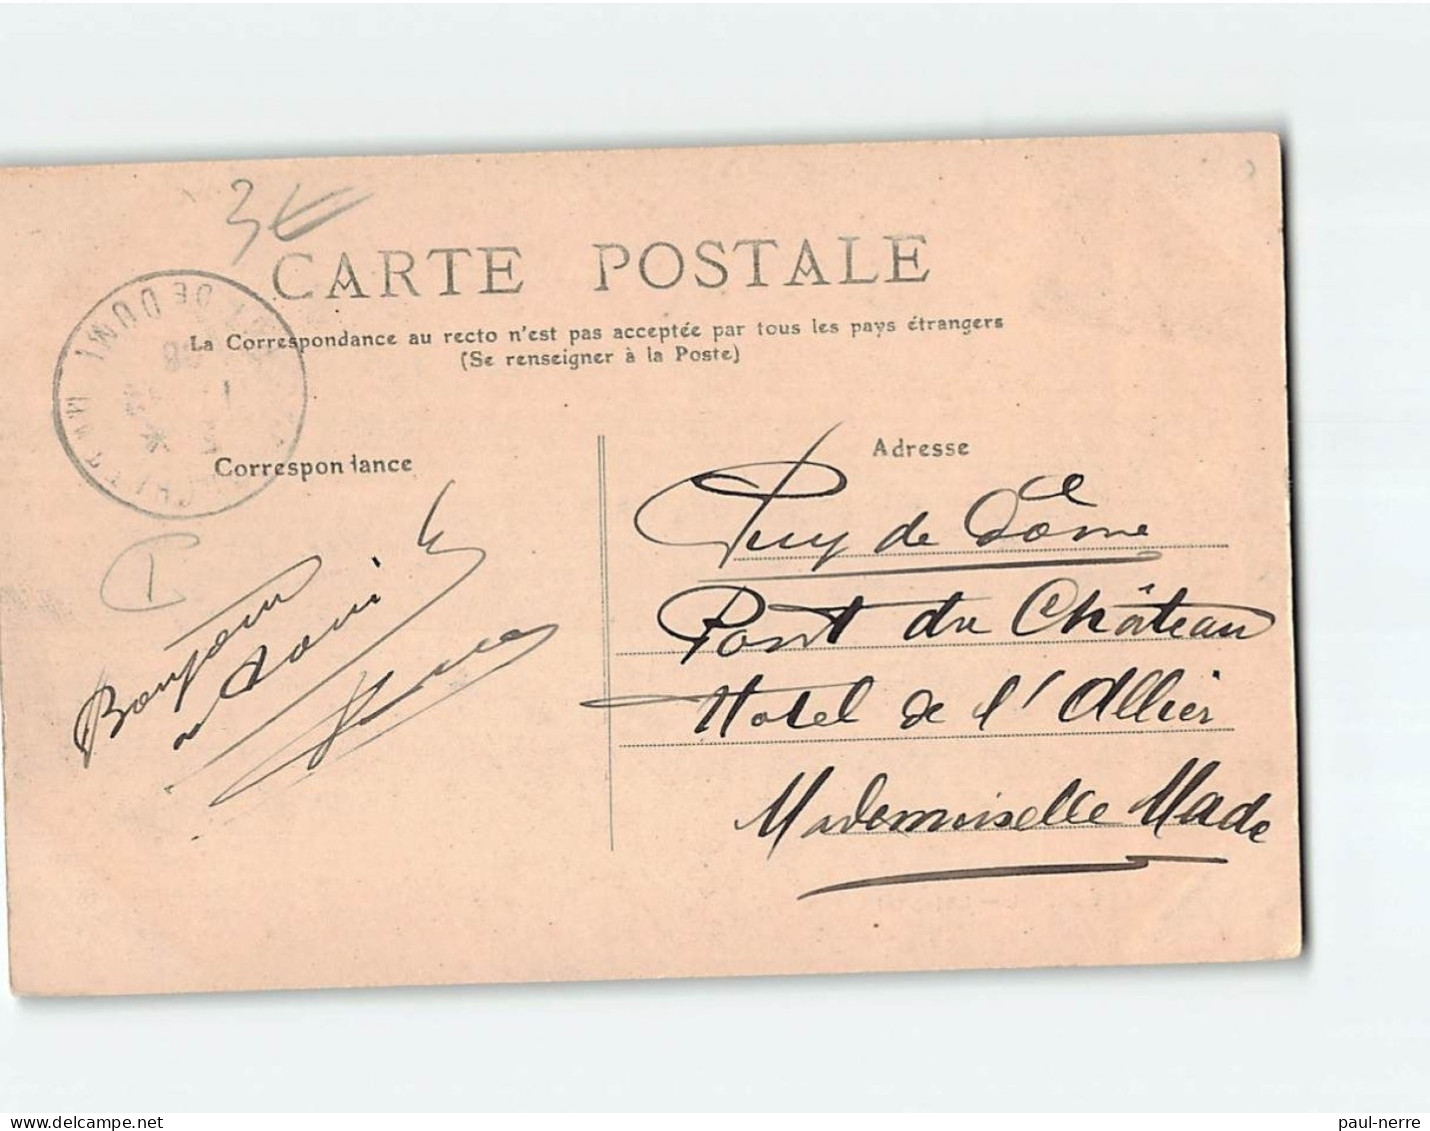 3€
CARTE POSTALE
La Correspondance au recto n'est pas acceptée par tous les pays étrangers
(Se renseigner à la Poste)
PUY DE DOME
08
Correspondance
Adresse
Bonjour
Puy de Dôme
Pont du Château
Hotel de l'Allier
Mademoiselle Made
delcampe.net
paul-nerre